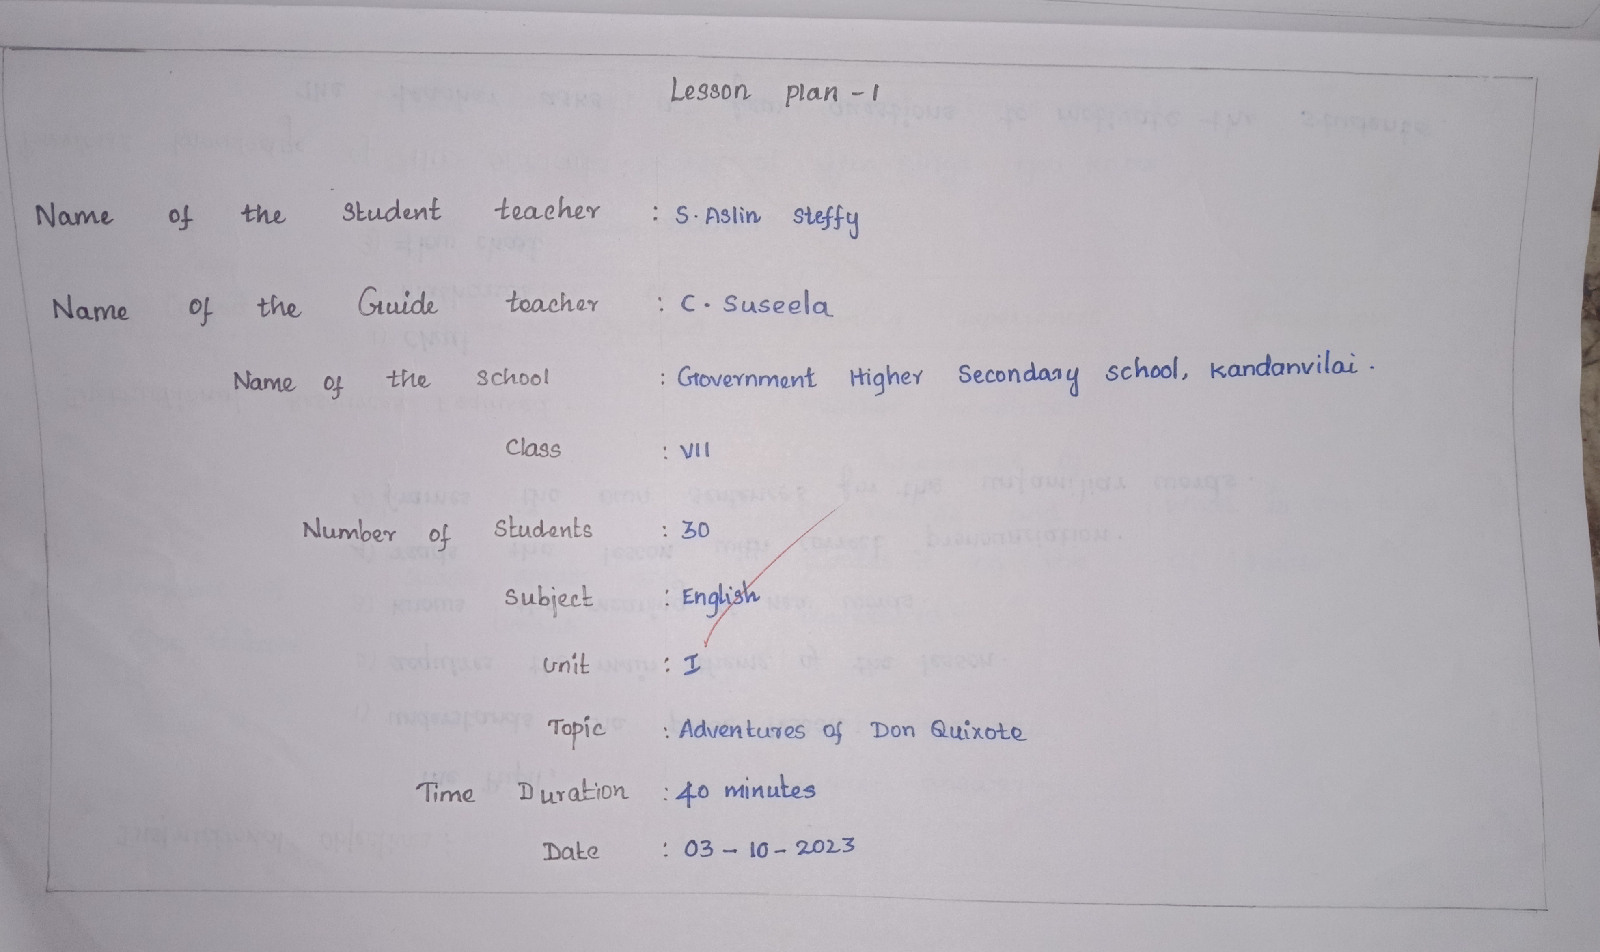 Lesson plan - 1
Name of the Student teacher : S. Aslin Steffy
Name of the Guide teacher : C. Suseela
Name of the School : Government Higher Secondary School, Kandanvilai.
Class : VII
Number of Students : 30
Subject : English
Unit : I
Topic : Adventures of Don Quixote
Time Duration : 40 minutes
Date : 03 - 10 - 2023